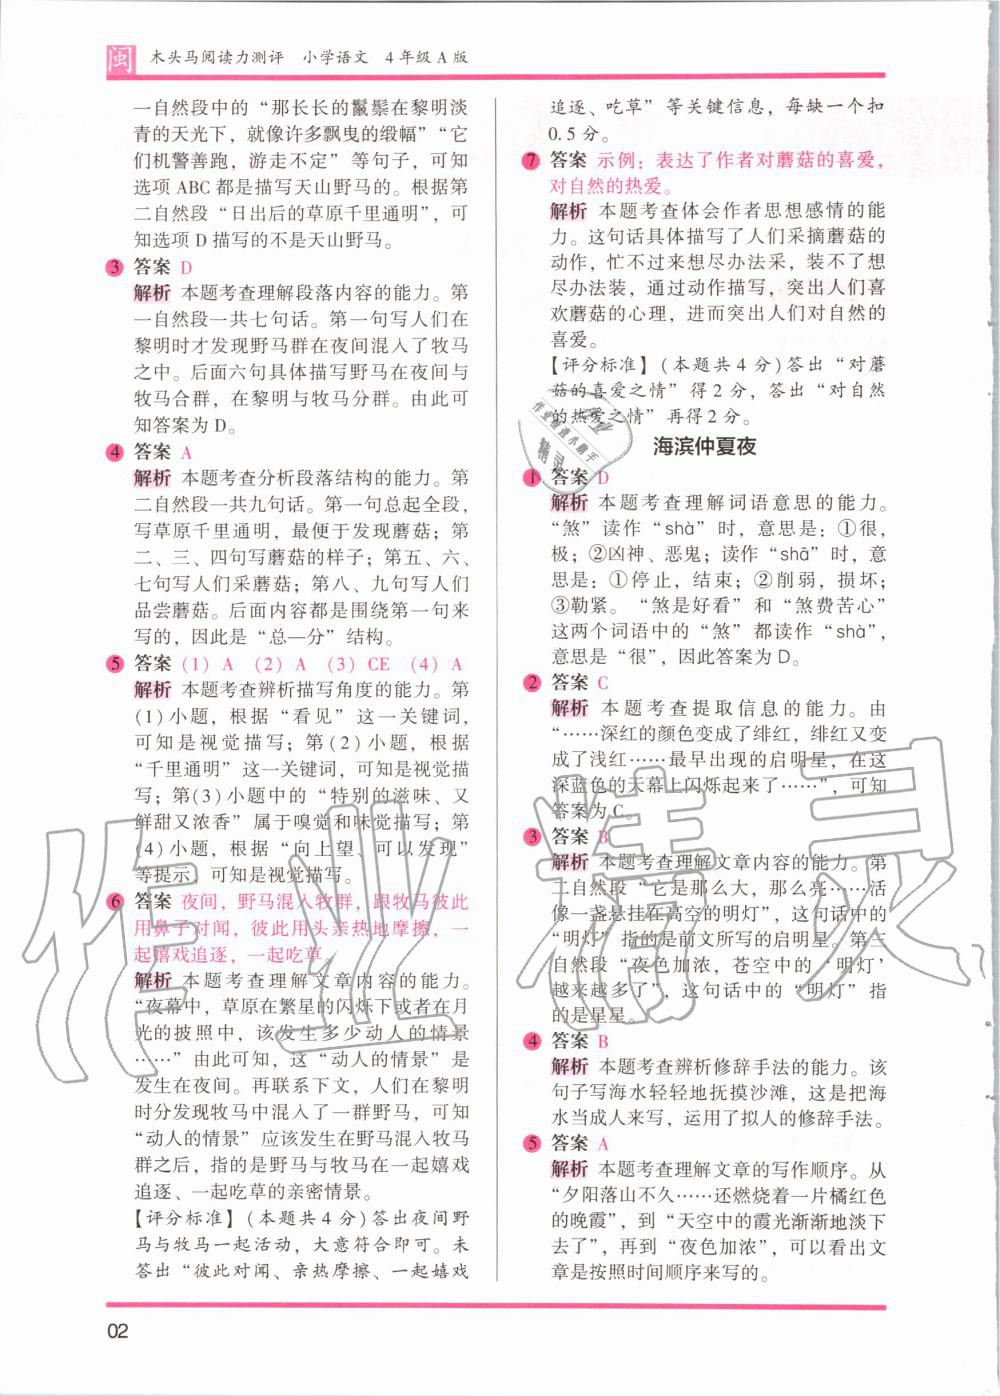 闽 木头马阅读力测评 小学语文 4年级A版
一自然段中的“那长长的鬣鬃在黎明淡
青的天光下，就像许多飘曳的缎幅”“它
们机警善跑，游走不定”等句子，可知
选项ABC都是描写天山野马的。根据第
二自然段“日出后的草原千里通明”，可
知选项D描写的不是天山野马。
3 答案 D
解析 本题考查理解段落内容的能力。第
一自然段一共七句话。第一句写人们在
黎明时才发现野马群在夜间混入了牧马
之中。后面六句具体描写野马在夜间与
牧马合群，在黎明与牧马分群。由此可
知答案为D。
4 答案 A
解析 本题考查分析段落结构的能力。第
二自然段一共九句话。第一句总起全段，
写草原千里通明，最便于发现蘑菇；第
二、三、四句写蘑菇的样子；第五、六、
七句写人们采蘑菇；第八、九句写人们
品尝蘑菇。后面内容都是围绕第一句来
写的，因此是“总—分”结构。
5 答案 （1）A （2）A （3）CE （4）A
解析 本题考查辨析描写角度的能力。第
（1）小题，根据“看见”这一关键词，
可知是视觉描写；第（2）小题，根据
“千里通明”这一关键词，可知是视觉描
写；第（3）小题中的“特别的滋味、又
鲜甜又浓香”属于嗅觉和味觉描写；第
（4）小题，根据“向上望、可以发现”
等提示，可知是视觉描写。
6 答案 夜间，野马混入牧群，跟牧马彼此
用鼻子对闻，彼此用头亲热地摩擦，一
起嬉戏追逐，一起吃草。
解析 本题考查理解文章内容的能力。
“夜幕中，草原在繁星的闪烁下或者在月
光的披照中，该发生多少动人的情景
……”由此可知，这“动人的情景”是
发生在夜间。再联系下文，人们在黎明
时分发现牧马中混入了一群野马，可知
“动人的情景”应该发生在野马混入牧马
群之后，指的是野马与牧马在一起嬉戏
追逐、一起吃草的亲密情景。
【评分标准】（本题共4分）答出夜间野
马与牧马一起活动，大意符合即可。未
答出“彼此对闻、亲热摩擦、一起嬉戏
追逐、吃草”等关键信息，每缺一个扣
0.5分。
7 答案 示例：表达了作者对蘑菇的喜爱，
对自然的热爱。
解析 本题考查体会作者思想感情的能
力。这句话具体描写了人们采摘蘑菇的
动作，忙不过来想尽办法采，装不了想
尽办法装，通过动作描写，突出人们喜
欢蘑菇的心理，进而突出人们对自然的
喜爱。
【评分标准】（本题共4分）答出“对蘑
菇的喜爱之情”得2分，答出“对自然
的热爱之情”再得2分。
海滨仲夏夜
1 答案 D
解析 本题考查理解词语意思的能力。
“煞”读作“shà”时，意思是：①很，
极；②凶神、恶鬼；读作“shā”时，意
思是：①停止，结束；②削弱，损坏；
③勒紧。“煞是好看”和“煞费苦心”
这两个词语中的“煞”都读作“shà”，
意思是“很”，因此答案为D。
2 答案 C
解析 本题考查提取信息的能力。由
“……深红的颜色变成了绯红，绯红又变
成了浅红……最早出现的启明星，在这
深蓝色的天幕上闪烁起来了……”，可知
答案为C。
3 答案 B
解析 本题考查理解文章内容的能力。第
二自然段“它是那么大，那么亮……活
像一盏悬挂在高空的明灯”中的
“明灯”指的是前文所写的启明星。第三
自然段“夜色加浓，苍空中的‘明灯’
越来越多了”，这句话中的“明灯”指
的是星星。
4 答案 B
解析 本题考查辨析修辞手法的能力。该
句子写海水轻轻地抚摸沙滩，这是把海
水当成人来写，运用了拟人的修辞手法。
5 答案 A
解析 本题考查理解文章的写作顺序。从
“夕阳落山不久……还燃烧着一片橘红色
的晚霞”，到“天空中的霞光渐渐地淡下
去了”，再到“夜色加浓”，可以看出文
章是按照时间顺序来写的。
02
作业精灵